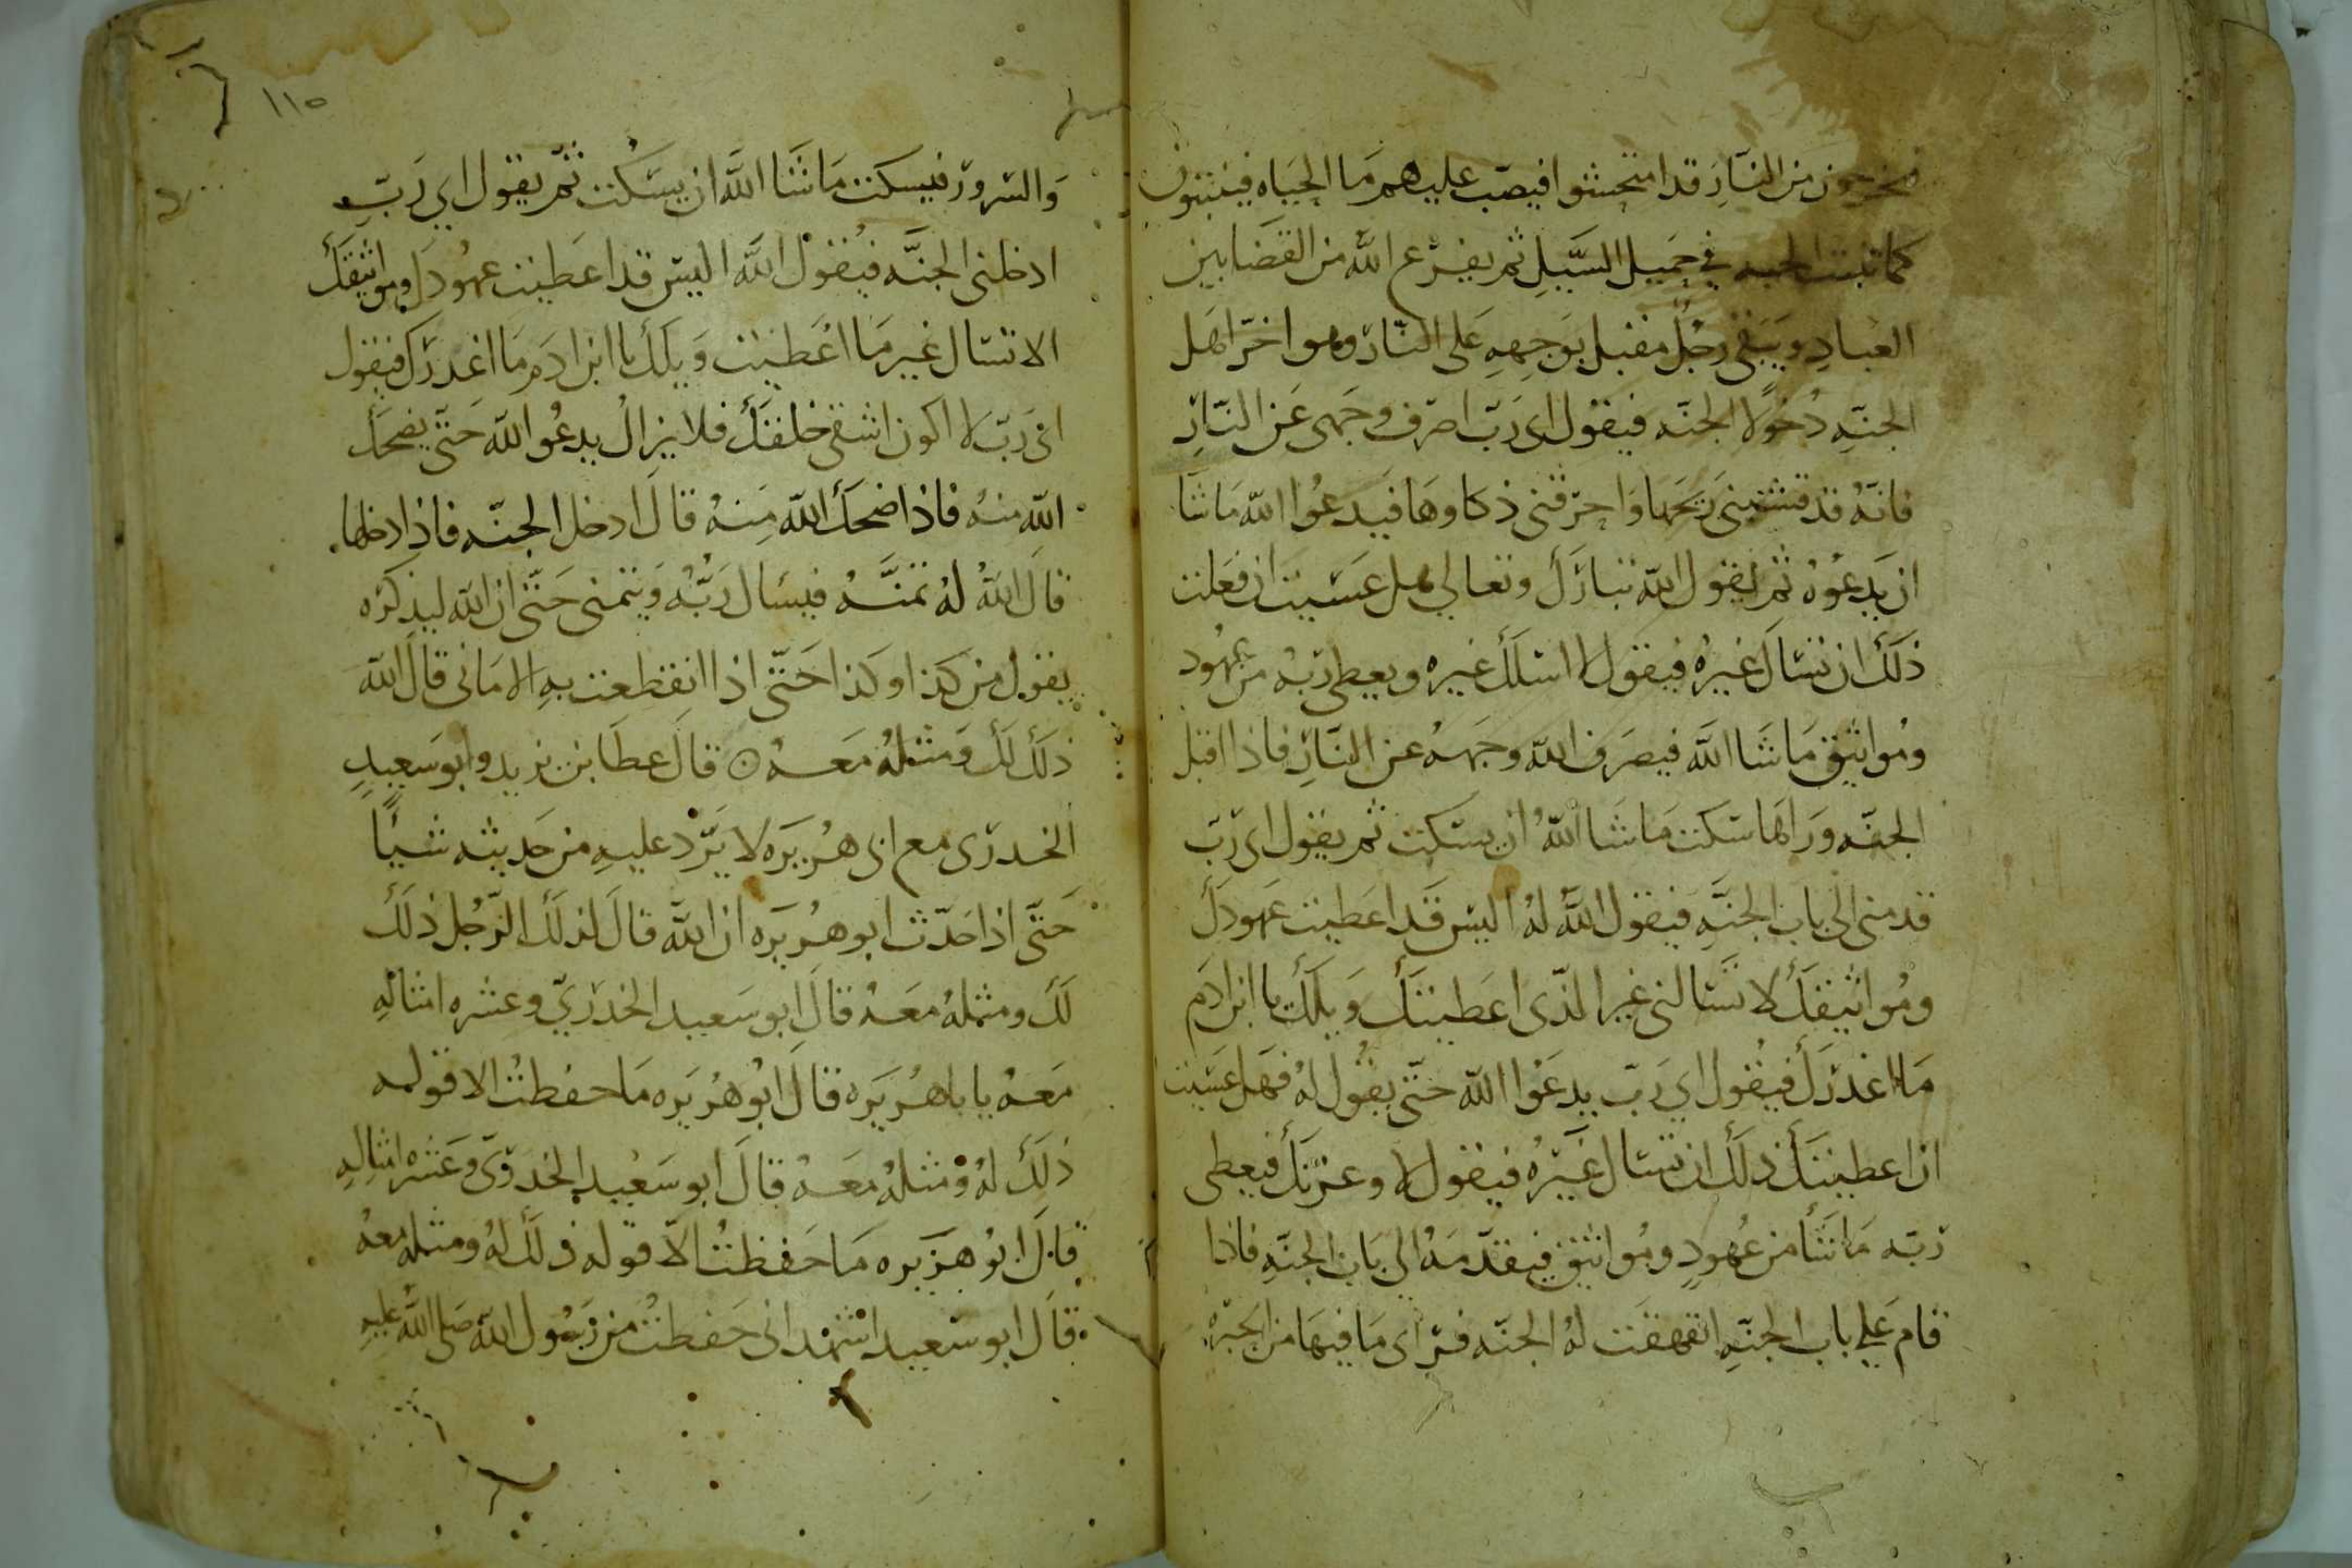 فيخرجون من النار قد امتحشوا فيصب عليهم ما الحياه فينبتون
كما تنبت الحبه في حميل السيل ثم يفرغ الله من القضا بين
العباد ويبقى رجل مقبل بوجهه على النار وهو اخر اهل
الجنه دخولا الجنه فيقول اى رب اصرف وجهى عن النار
فانه قد قشبنى ريحها واحرقنى ذكاوها فيدعوا الله ما شا
ان يدعوه ثم يقول الله تبارك وتعالى هل عسيت ان فعلت
ذلك ان تسال غيره فيقول لا اسلك غيره ويعطى ربه من عهود
ومواثيق ما شا الله فيصرف الله وجهه عن النار فاذا اقبل
الجنه وراها سكت ما شا الله ان يسكت ثم يقول اى رب
قدمنى الى باب الجنه فيقول الله له اليس قد اعطيت عهودك
ومواثيقك لا تسالنى غير الذى اعطيتك ويلك يا ابن ادم
ما اغدرك فيقول اي رب يدعوا الله حتى يقول له فهل عسيت
ان اعطيتك ذلك ان تسال غيره فيقول لا وعزتك فيعطى
ربه ما شا من عهود ومواثيق فيقدمه الى باب الجنه فاذا
قام على باب الجنه انفهقت له الجنه فراى ما فيها من الحبره
١١٥
والسرور فيسكت ما شا الله ان يسكت ثم يقول اي رب
ادخلنى الجنه فيقول الله اليس قد اعطيت عهودك ومواثيقك
الا تسال غير ما اعطيت ويلك يا ابن ادم ما اغدرك فيقول
اى رب لا اكون اشقى خلقك فلا يزال يدعوا الله حتى يضحك
الله منه فاذا ضحك الله منه قال ادخل الجنه فاذا دخلها
قال الله له تمنه فيسال ربه ويتمنى حتى ان الله ليذكره
يقول من كذا وكذا حتى اذا انقطعت به الامانى قال الله
ذلك لك ومثله معه ۝ قال عطا بن يزيد وابو سعيد
الخدرى مع ابى هريره لا يرد عليه من حديثه شيأ
حتى اذا حدث ابو هريره ان الله قال لذلك الرجل ذلك
لك ومثله معه قال ابو سعيد الخدري وعشره امثاله
معه يا باهريره قال ابو هريره ما حفظت الا قوله
ذلك له ومثله معه قال ابو سعيد الخدرى وعشره امثاله
قال ابو هريره ما حفظت الا قوله ذلك له ومثله معه
قال ابو سعيد اشهد انى حفظت من رسول الله صلى الله عليه